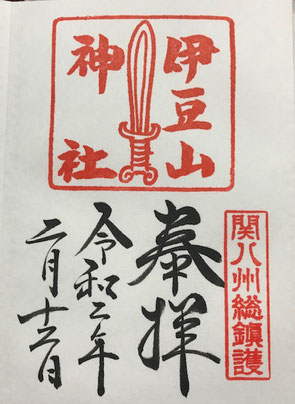 伊豆山
神社
関八州総鎮護
奉拝
令和二年
二月十六日